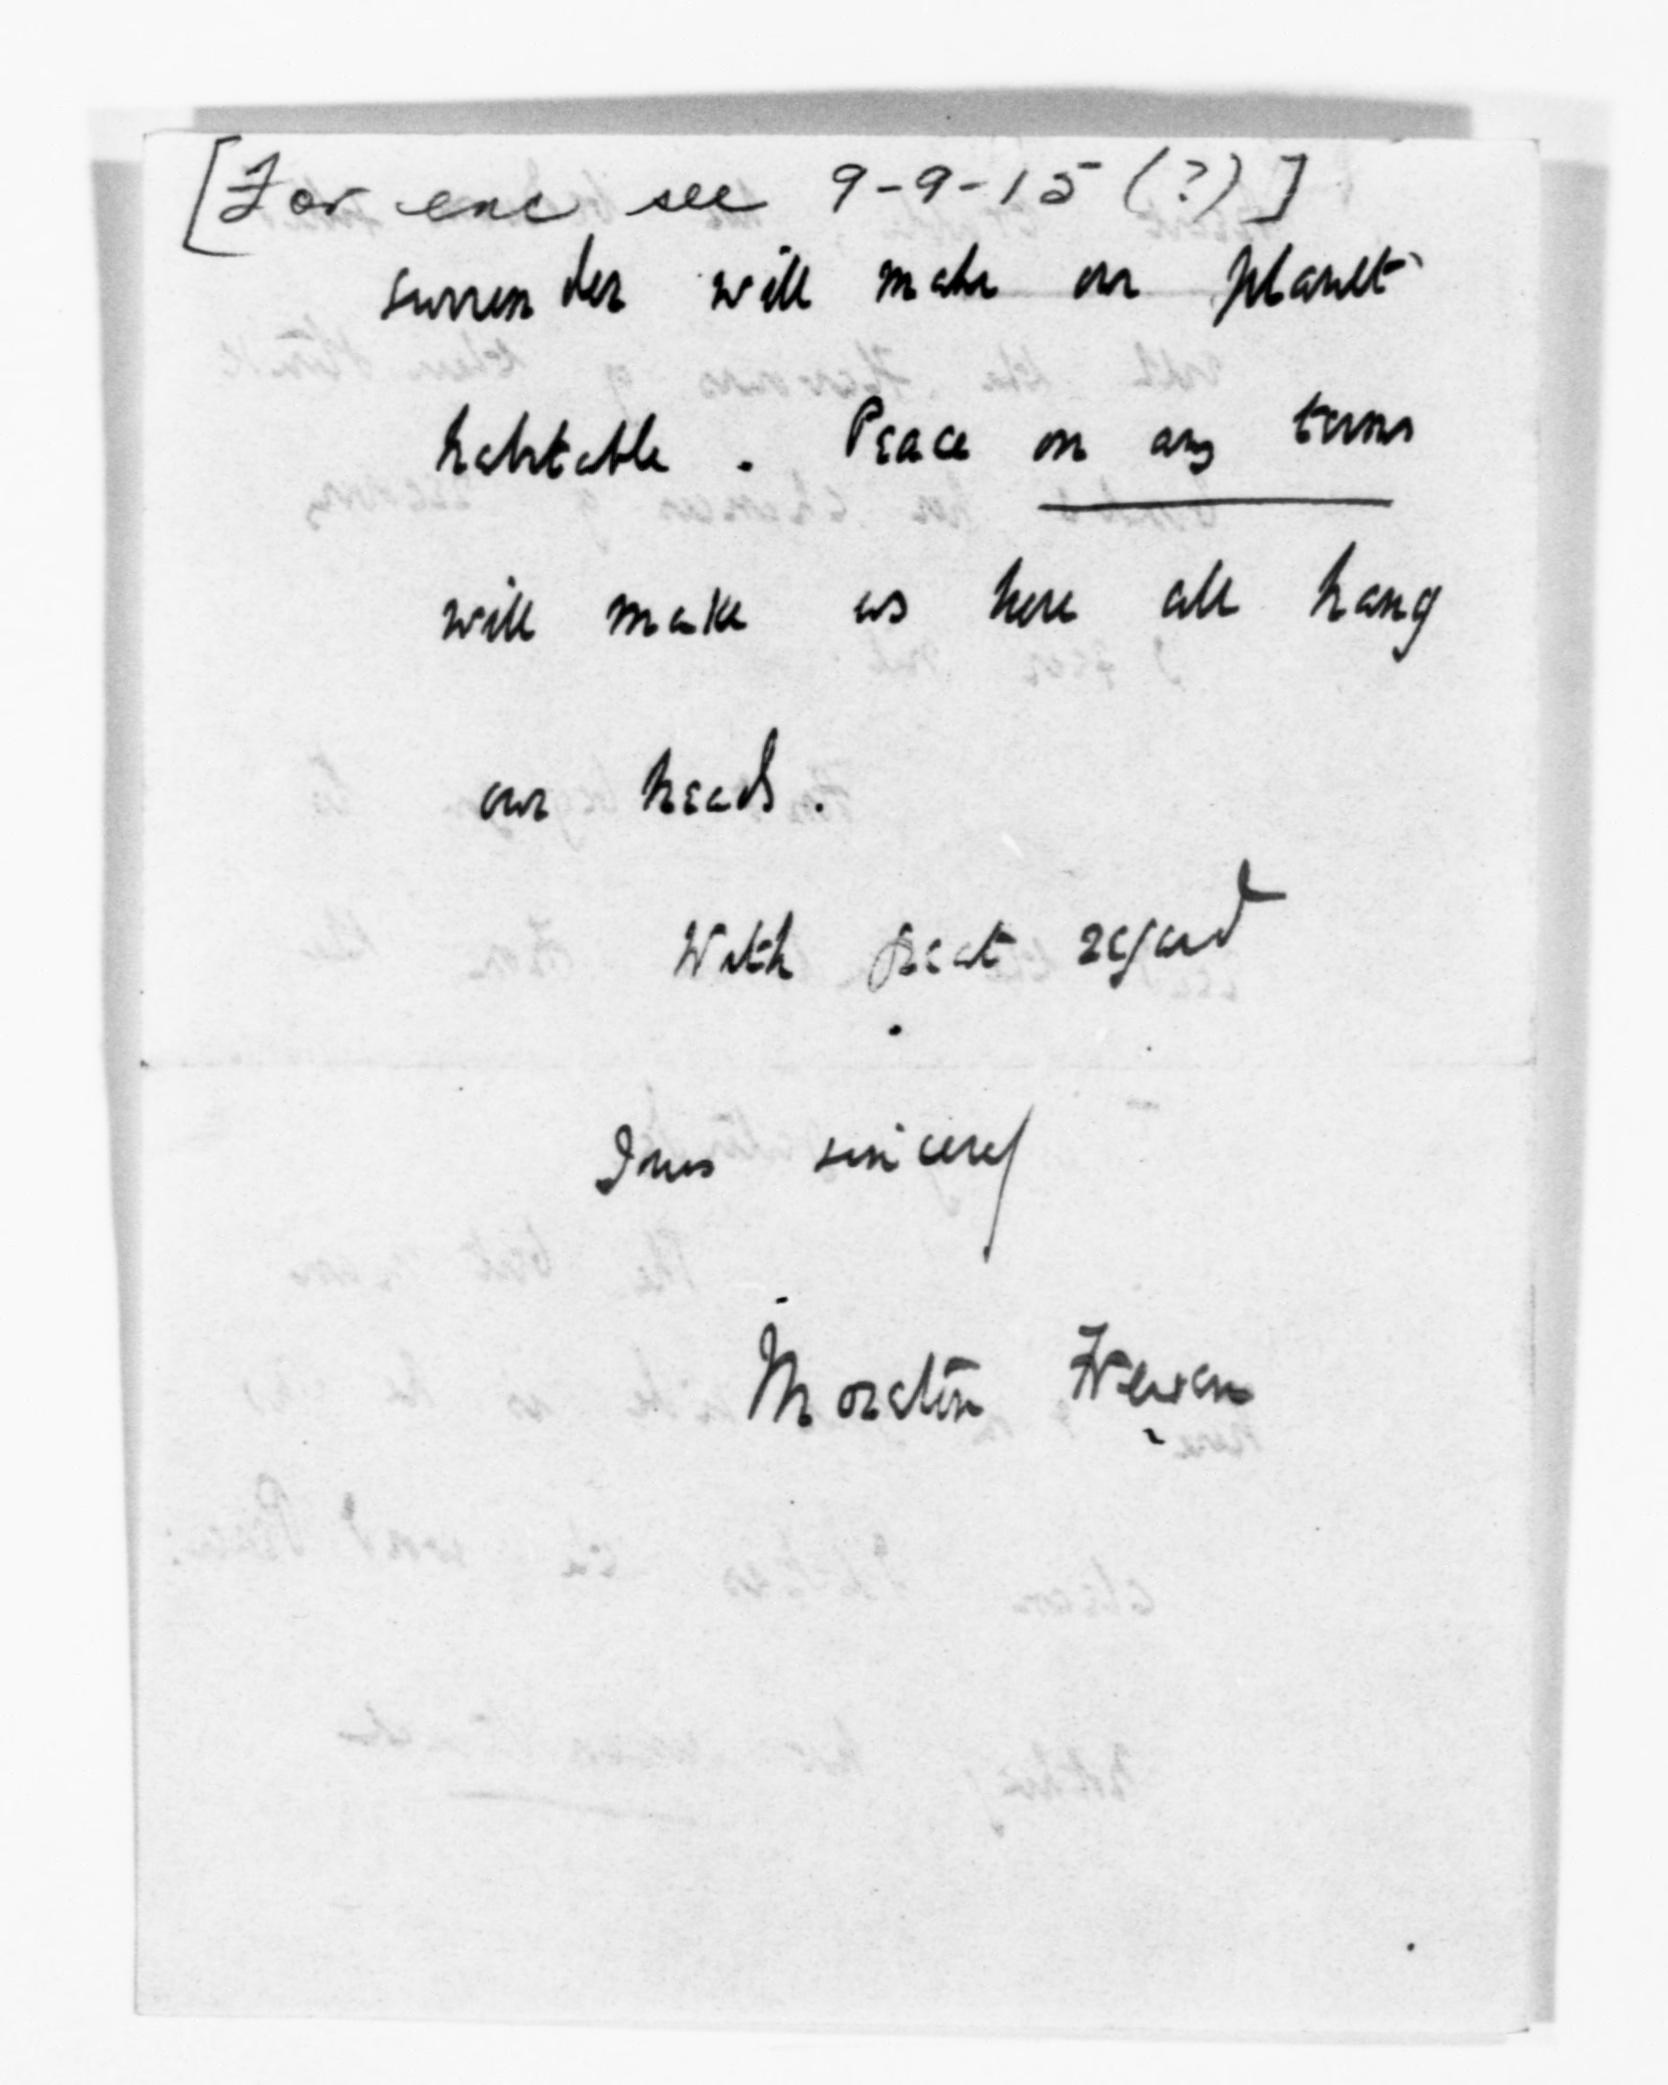 [For enc see 9-9-15 (?)]
surrender will make our planet
habitable. Peace on any terms
will make us here all hang
our heads.
With great regard
Yours sincerely
Moreton Frewen